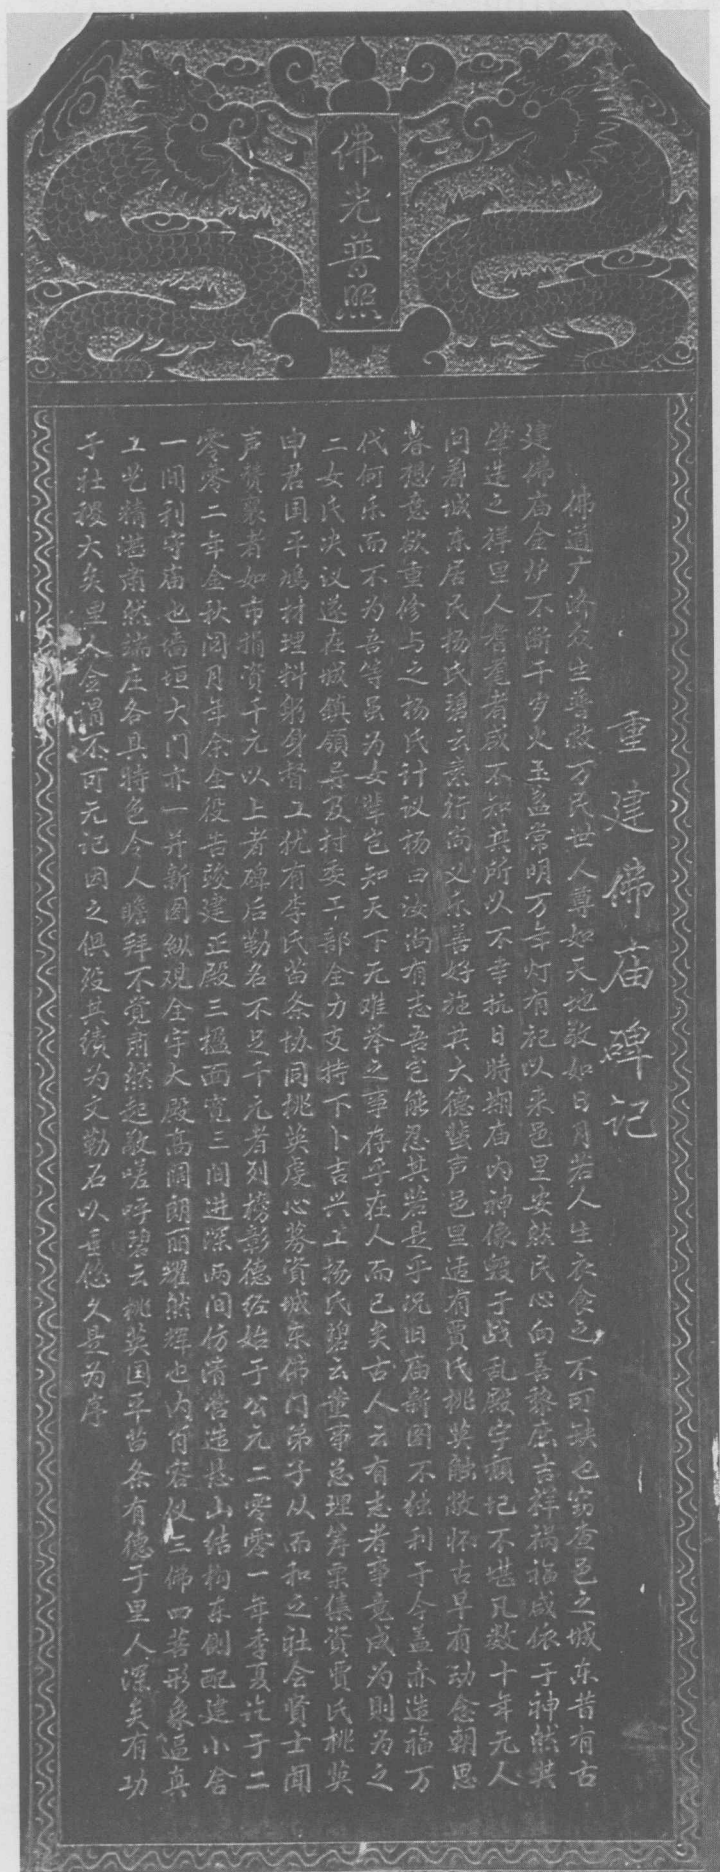 佛光普照
重建佛庙碑记
佛道广济众生普救万民世人尊如天地敬如日月若人生衣食之不可缺也窃查邑之城东昔有古
建佛庙金炉不断千岁火玉盏常明万年灯有祀以来邑里安然民心向善黎庶吉祥祸福咸依于神然其
肇造之祥里人耆耄者咸不知其所以不幸抗日时期庙内神像毁于战乱殿宇颓圮不堪凡数十年无人
问着城东居民杨氏碧云素行尚义乐善好施其大德蜚声邑里适有贾氏桃英触敝怀古早有动念朝思
暮想意欲重修与之杨氏计议杨曰汝尚有志吾岂能忍其若是乎况旧庙新图不独利于今盖亦造福万
代何乐而不为吾等虽为女辈岂知天下无难举之事存乎在人而已矣古人云有志者事竟成为则为之
二女氏决议遂在城镇领导及村委干部全力支持下卜吉兴工杨氏碧云董事总理筹粟集资贾氏桃英
申君国平鸠材理料躬身督工优有李氏苗条协同桃英虔心募资城东佛门弟子从而和之社会贤士闻
声赞襄者如市捐资千元以上者碑后勒名不足千元者列榜彰德经始于公元二零零一年季夏讫于二
零零二年金秋闰月年余全役告竣建正殿三楹面宽三间进深两间仿清营造悬山结构东侧配建小舍
一间利守庙也墙垣大门亦一并新图纵观全宇大殿高阔朗丽耀然辉也内肖容仪三佛四菩形象逼真
工艺精湛肃然端庄各具特色令人瞻拜不觉肃然起敬嗟呼碧云桃英国平苗条有德于里人深矣有功
于社稷大矣里人佥谓不可无记因之俱殁其绩为文勒石以垂悠久是为序